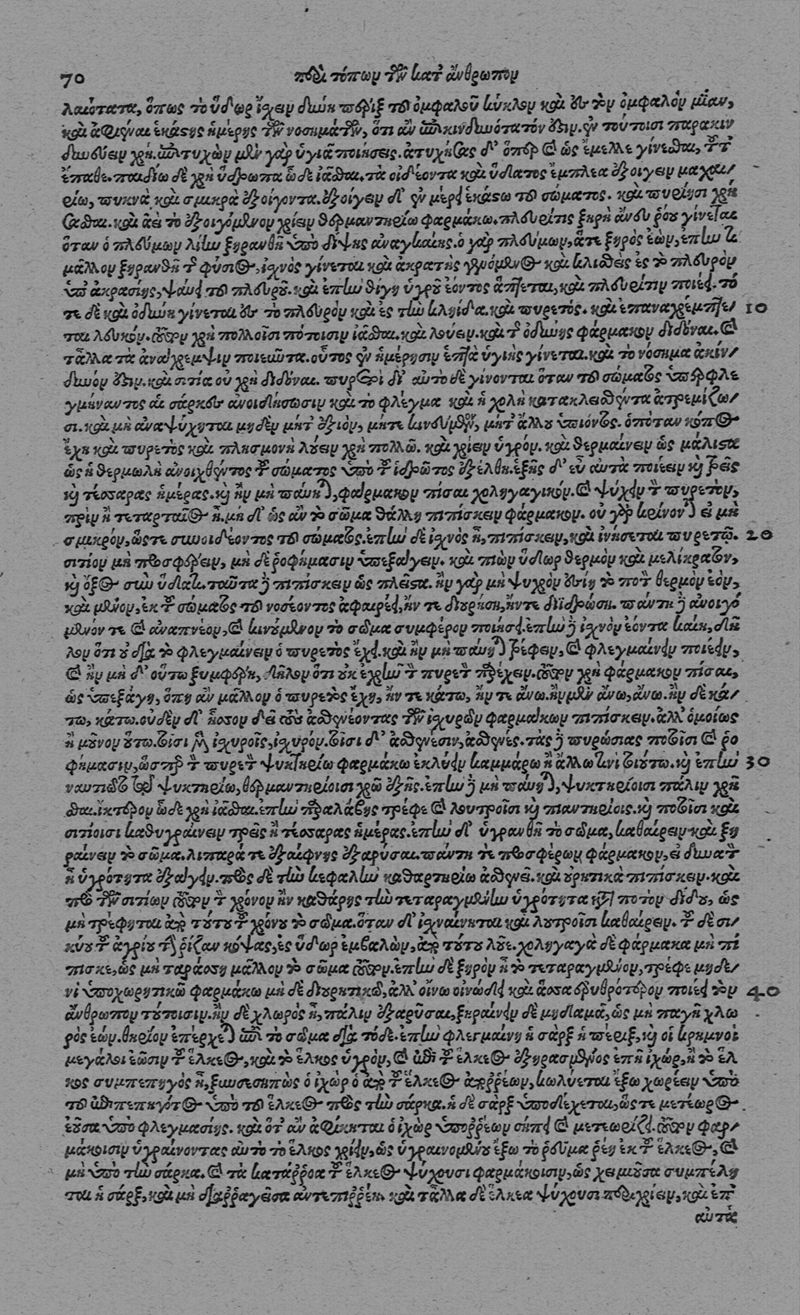 70 περὶ τόπων τῶν κατ' ἄνθρωπον
λαιότατα, ὅπως τὸ ὕδωρ ἴσχειν δύνῃ πέριξ τοῦ ὀμφαλοῦ κύκλον καὶ ἐν τὸν ὀμφαλὸν μίαν,
καὶ ἀφιέναι ἑκάστης ἡμέρης τῶν νοσημάτων, ὅτι ἂν ἐπικινδυνότατόν ἐστιν. ἐν τούτοισι παρακιν
δυνεύειν χρή. ἐπιτυχὼν μὲν γὰρ ὑγιᾶ ποιήσεις. ἀτυχήσας δ' ὅπερ καὶ ὣς ἔμελλε γίνεσθαι, τοῦτ'
ἔπαθε. παιδίω δὲ χρὴ ὕδρωπα ὧδε ἰᾶσθαι. τὰ οἰδέοντα καὶ ὕδατος ἔμπλεα ἐξοίγειν μαχαι/
ρίω, πυκνὰ καὶ σμικρὰ ἐξοίγοντα. ἐξοίγειν δ' ἐν μέρει ἑκάστω τοῦ σώματος. καὶ πυρίῃσι χρῆ
σθαι. καὶ ἀεὶ τὸ ἐξοιγόμενον χρίειν θερμαντηρίω φαρμάκω. πλευρῖτις ξηρὴ ἄνευ ῥόου γίνεται
ὅταν ὁ πλεύμων λίην ξηρανθῇ ὑπὸ δίψης ἀναγκαίης. ὁ γὰρ πλεύμων, ἅτε ξηρὸς ἐὼν, ἐπὴν τι
μᾶλλον ξηρανθῇ τῆς φύσιος, ἰσχνὸς γίνεται καὶ ἀκρατὴς γενόμενος καὶ κλιθεὶς ἐς τὸ πλευρὸν
ὑπ' ἀκρασίης, ψαύει τοῦ πλευροῦ. καὶ ἐπὴν θίγῃ ὑγροῦ ἐόντος ἅπτεται, καὶ πλευρῖτιν ποιέει. τό
τε δὲ καὶ ὀδύνη γίνεται ἐν τὸ πλευρὸν καὶ ἐς τὴν κληίδα. καὶ πυρετός. καὶ ἐπαναχρέμπτε/ 10
ται λευκόν. τοῦτον χρὴ πολλοῖσι πότοισιν ἰᾶσθαι. καὶ λούειν. καὶ τῆς ὀδύνης φάρμακον διδόναι. καὶ
τἆλλα τὰ ἀναχρέμψιν ποιεῦντα. οὗτος ἐν ἡμέρῃσιν ἑπτὰ ὑγιὴς γίνεται. καὶ τὸ νόσημα ἀκίν/
δυνόν ἐστιν. καὶ σιτία οὐ χρὴ διδόναι. πυρετοὶ δι' αὐτὸ δὲ γίνονται ὅταν τοῦ σώματος ὑπερφλε
γμήναντος αἱ σάρκες ἀνοιδήσωσιν καὶ τὸ φλέγμα καὶ ἡ χολὴ κατακλεισθέντα ἀτρεμίζω/
σι. καὶ μὴ ἀναψύχηται μηδὲν μήτ' ἐξιὸν, μήτε κινεύμενον, μήτ' ἄλλου ὑπιόντος. ὁπόταν κόπος
ἔχῃ καὶ πυρετὸς καὶ πλησμονὴ λούειν χρὴ πολλῶ. καὶ χρίειν ὑγρόν. καὶ θερμαίνειν ὡς μάλιστα
ὡς ἡ θερμωλὴ ἀνοιχθέντος τοῦ σώματος ὑπὸ τοῦ ἱδρῶτος ἐξέλθῃ. ἑξῆς δ' εὖ αὐτὰ ποιέειν καὶ τρεῖς
καὶ τέσσαρας ἡμέρας. καὶ ἢν μὴ παύηται, φάρμακον πῖσαι χοληγαγικόν. καὶ ψύχειν τὸν πυρετὸν,
πρὶν ἢ τεταρταῖος ᾖ. μὴ δ' ὡς ἂν τὸ σῶμα θάλλῃ πιπίσκειν φάρμακον. οὐ γὰρ κρίνονται εἰ μὴ
σμικρὸν, ὥστε συνοιδέοντος τοῦ σώματος. ἐπὴν δὲ ἰσχνὸς ᾖ, πιπίσκειν, καὶ ἰνήσεται πυρετῶ. 20
σιτίον μὴ προσφέρειν, μὴ δὲ ῥοφήμασιν ὑπεξάγειν. καὶ πιεῖν ὕδωρ θερμὸν καὶ μελίκρατον,
καὶ ὄξος σὺν ὕδατι. ταῦτα δὲ πιπίσκειν ὡς πλεῖστα. ἢν γὰρ μὴ ψυχρὸν ἐσίῃ τὸ ποτὸν θερμὸν ἐὸν,
καὶ μένον, ἐκ τοῦ σώματος τοῦ νοσέοντος ἀφαιρέει, ἤν τε διουρήσῃ, ἤντε διϊδρώσῃ. πάντῃ δὲ ἀνοιγό
μενόν τε καὶ ἀναπνέον, καὶ κινούμενον τὸ σῶμα συμφέρον ποιήσει. ἐπὴν δὲ ἰσχνὸν ἐόντα καίῃ, δῆ
λον ὅτι οὐ διὰ τὸ φλεγμαίνειν ὁ πυρετὸς ἔχει. καὶ ἢν μὴ παύηται τρέφειν, καὶ φλεγμαίνειν ποιέειν,
καὶ ἢν μὴ δ' οὕτω ξυμφέρῃ, δῆλον ὅτι οὐκ ἔχειν τοῦ πυρετοῦ πρέχειν. τοῦτον χρὴ φάρμακον πῖσαι,
ὡς ὑπεξάγῃ, ὅπη ἂν μᾶλλον ὁ πυρετὸς ἔχῃ, ἤν τε κάτω, ἤν τε ἄνω. ἢν μὲν ἄνω, ἄνω. ἢν δὲ κά/
τω, κάτω. οὐδὲν δ' ἧσσον δεῖ τοὺς ἀσθενέοντας τῶν ἰσχυρῶν φαρμάκων πιπίσκειν. ἀλλ' ὁμοίως
ἢ μοῦνον οὕτω. τοῖσι μὲν ἰσχυροῖς, ἰσχυρόν. τοῖσι δ' ἀσθενέσιν, ἀσθενές. τὰς δὲ πυρώσιας ποτοῖσι καὶ ῥο
φήμασιν, ὥσπερ τὸν πυρετὸν ψυκτηρίω φαρμάκω ἐκλύειν καμμάρω ἢ ἄλλω τινὶ τοιούτω. καὶ ἐπὴν 30
μὴ παύηται τῶ ψυκτηρίω, θερμαντηρίοισι χρῶ ἑξῆς. ἐπὴν δὲ μὴ παύηται, ψυκτηρίοισι πάλιν χρῆ
σθαι. ἴκτερον ὧδε χρὴ ἰᾶσθαι. ἐπὴν παραλάβῃς τρέφε καὶ λουτροῖσι καὶ πιαντηρίοις. καὶ ποτοῖσι καὶ
σιτίοισι καθυγραίνειν τρεῖς ἢ τέσσαρας ἡμέρας. ἐπὴν δ' ὑγρανθῇ τὸ σῶμα, καθαίρειν καὶ ξη
ραίνειν τὸ σῶμα. λιπαρά τε ἐξαίφνης ἐξαρύσαι. πάντῃ τε προσφέρων φάρμακον, εἰ δυνατὸν
ᾖ ὑγρότητα ἐξάγειν. πρὸς δὲ τὴν κεφαλὴν καθαρτηρίω ἀσθενεῖ. καὶ οὐρητικὰ πιπίσκειν. καὶ
πρὸ τῶν σιτίων τοῦτον τὸν χρόνον ἢν καθάρῃς τὴν τεταραγμένην ὑγρότητα κατὰ ποτὸν δίδου, ὡς
μὴ τρέφηται ἀπὸ τούτου τοῦ χρόνου τὸ σῶμα. ὅταν δ' ἰσχναίνηται καὶ λουτροῖσι καθαίρειν. τοῦ δὲ σι/
κύου τοῦ ἀγρίου τὴν ῥίζαν κόψας, ἐς ὕδωρ ἐμβαλὼν, ἀπὸ τούτου λοῦε. χοληγαγὰ δὲ φάρμακα μὴ πί
πισκε, ὡς μὴ ταράσσῃ μᾶλλον τὸ σῶμα τοῦτον. ἐπὴν δὲ ξηρὸν ᾖ τὸ τεταραγμένον, τρέφε μηδε/
νὶ ὑποχωρητικῶ φαρμάκω μὴ δὲ διουρητικῶ, ἀλλ' οἴνω οἰνώδει καὶ ἅσσα ἐρυθρότερον ποιέει τὸν 40
ἄνθρωπον τούτοισιν. ἢν δὲ χλωρὸς ᾖ, πάλιν ἐξαρύσαι, ξηραίνειν δὲ μηδαμᾶ, ὡς μὴ παγῇ χλω
ρὸς ἐών. θηρίον ἐπέρχεται ἐπὶ τὸ σῶμα διὰ τόδε. ἐπὴν φλεγμαίνῃ ἡ σὰρξ ἡ πέριξ, καὶ οἱ κρημνοὶ
μεγάλοι ἔωσιν τοῦ ἕλκεος, καὶ τὸ ἕλκος ὑγρὸν, καὶ ἐπὶ τοῦ ἕλκεος ἐξηρασμένος ἐπῇ ἰχὼρ, ἢ τὸ ἕλ
κος συμπεπηγὸς ᾖ, ξυνσεσηπὼς ὁ ἰχὼρ ὁ ἀπὸ τοῦ ἕλκεος ἀπορρέων, κωλύεται ἔξω χωρέειν ὑπὸ
τοῦ ἐπιπεπηγότος ὑπὸ τοῦ ἕλκεος πρὸς τὴν σάρκα. ἡ δὲ σὰρξ ὑποδέχεται, ὥστε μετέωρος
ἐοῦσα ὑπὸ φλεγμασίης. καὶ ὅτ' ἂν ἀφίκηται ὁ ἰχὼρ ὑπορρέων σήπει καὶ μετεωρίζει. τοῦτον φαρ/
μάκοισιν ὑγραίνοντας αὐτὸ τὸ ἕλκος χρίειν, ὡς ὑγραινομένου ἔξω τὸ ῥεῦμα ῥέῃ ἐκ τοῦ ἕλκεος, καὶ
μὴ ὑπὸ τὴν σάρκα. καὶ τὰ κατάρροα τοῦ ἕλκεος ψύχουσι φαρμάκοισιν, ὡς χειμοῦσα συμπέλη
ται ἡ σὰρξ, καὶ μὴ διαρραγεῖσα ἀντεπιρρέῃ. καὶ τἆλλα δὲ ἕλκεα ψύχουσι περιχρίειν, καὶ ἐπ'
αὐτὰ